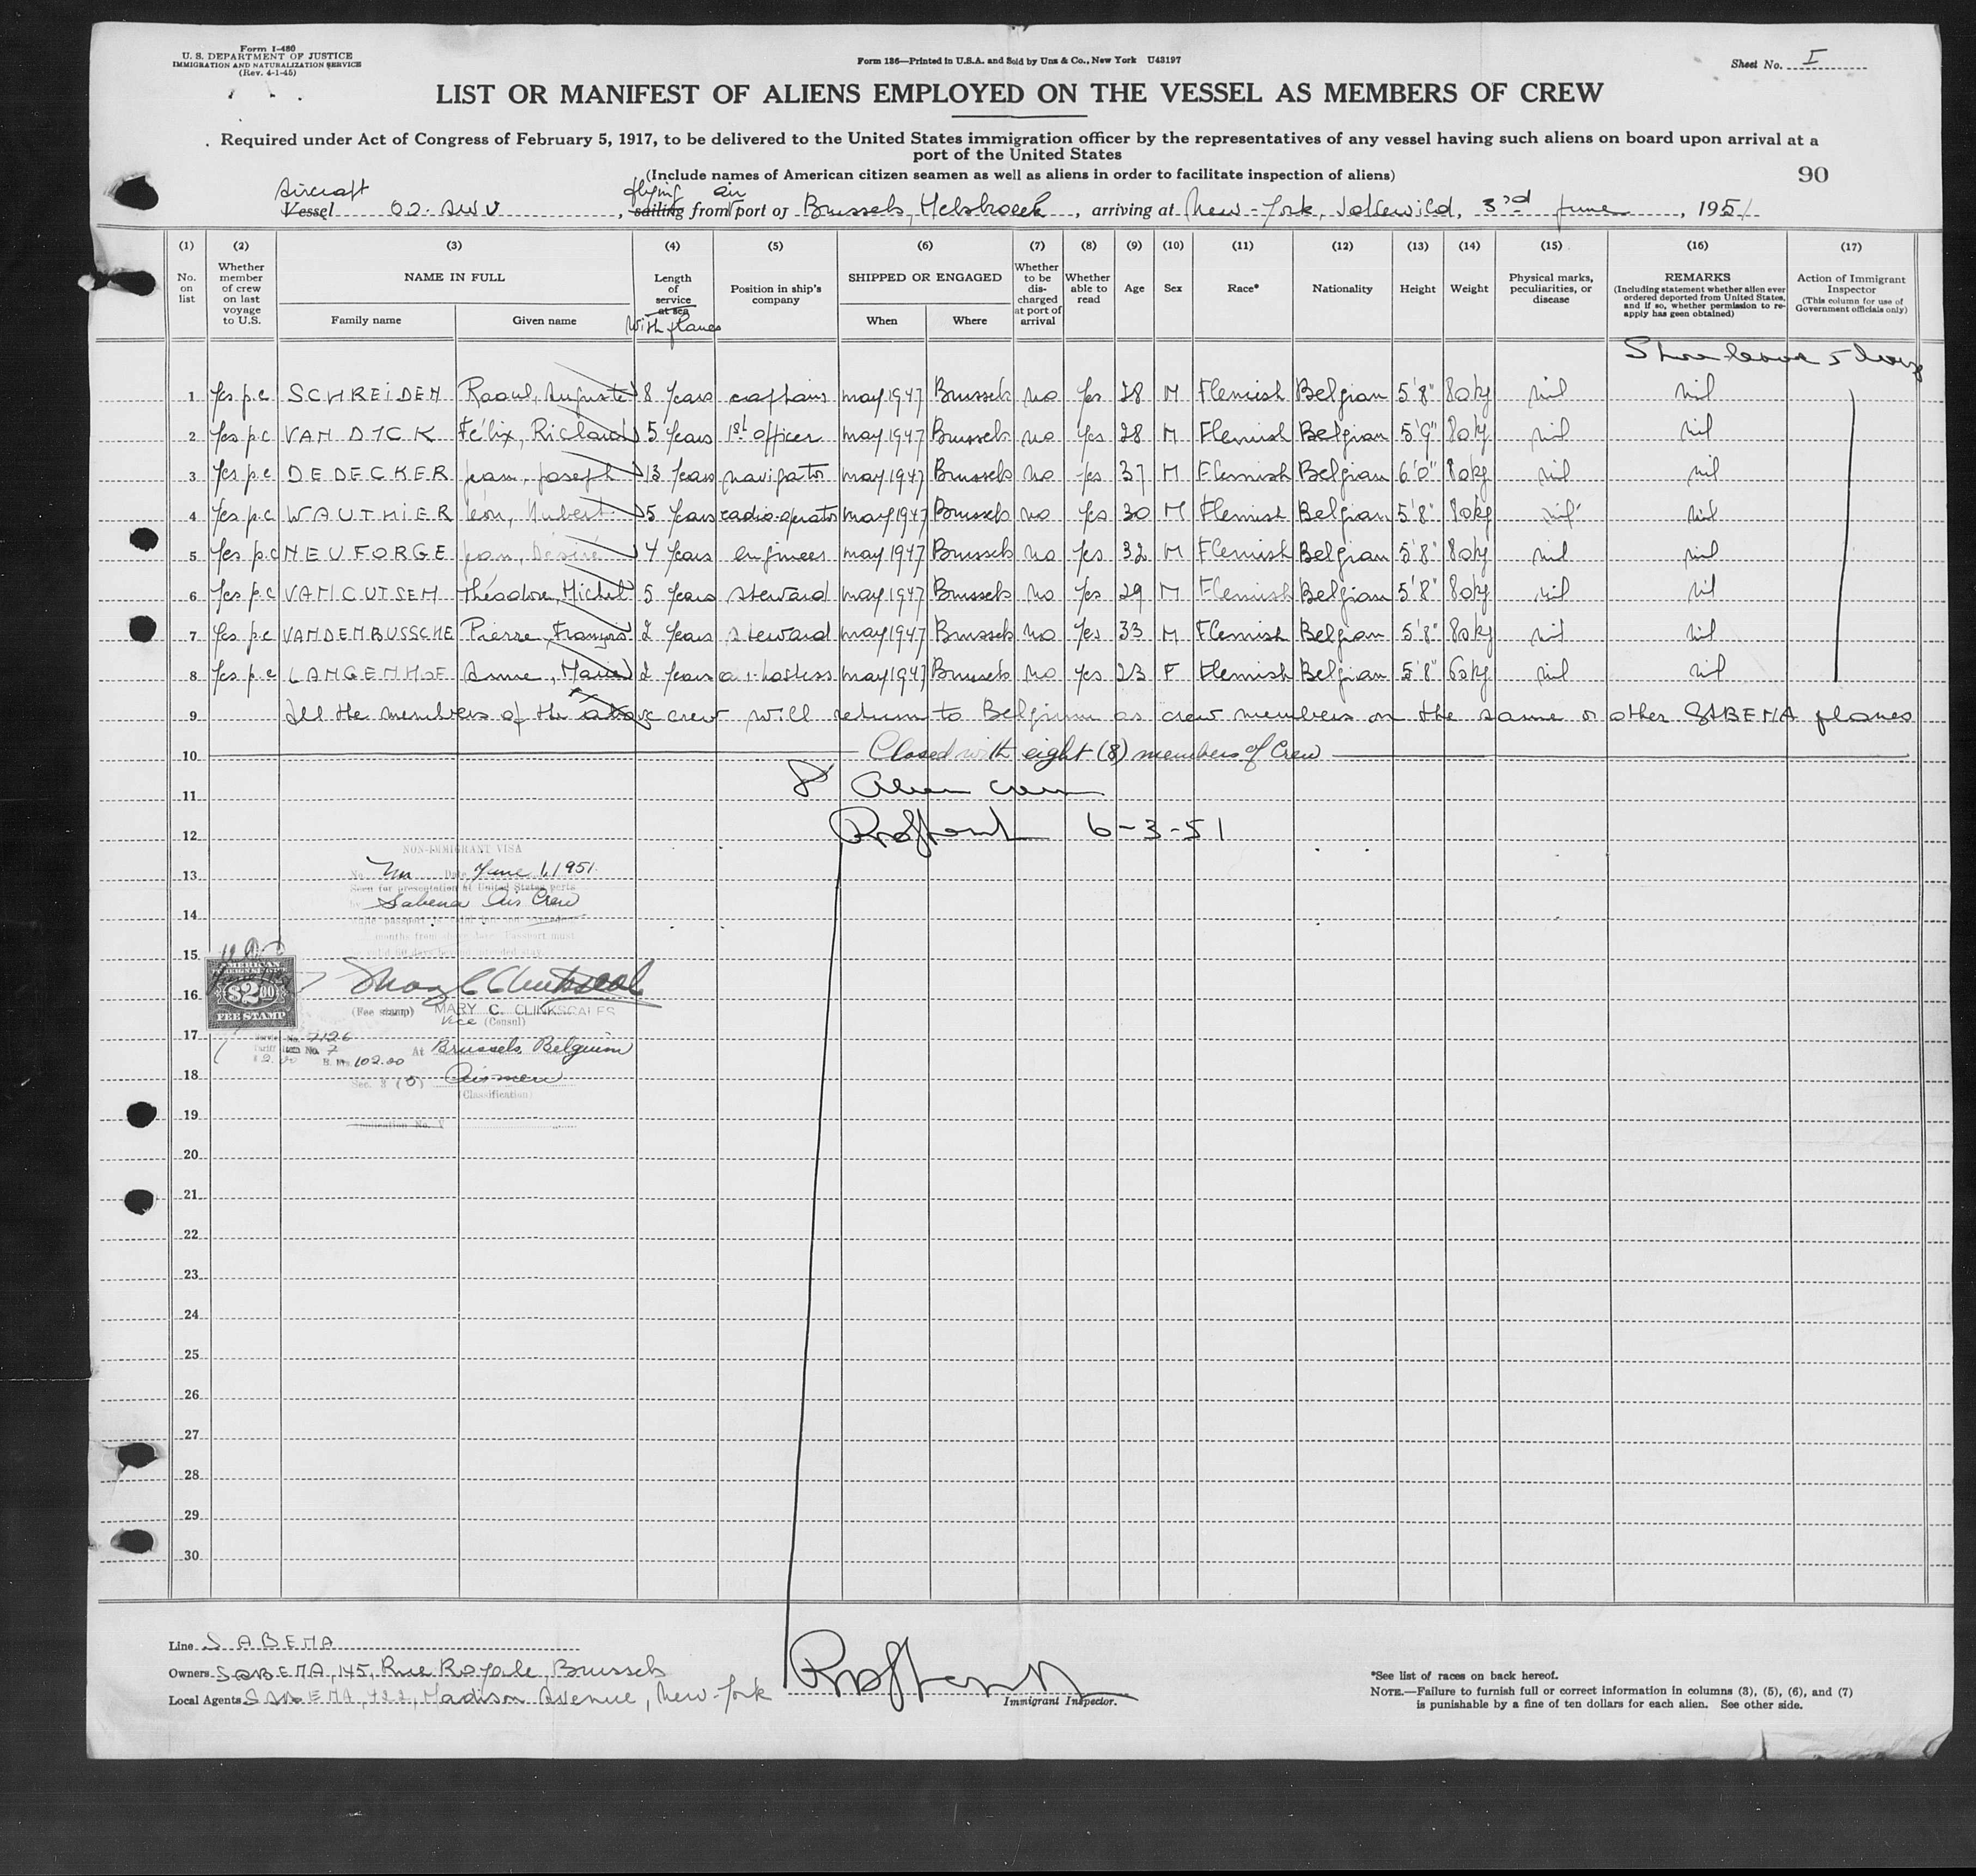 Form I-480
U. S. DEPARTMENT OF JUSTICE
IMMIGRATION AND NATURALIZATION SERVICE
(Rev. 4-1-45)
Form 136—Printed in U.S.A. and Sold by Unz & Co., New York U43197
Sheet No. I
LIST OR MANIFEST OF ALIENS EMPLOYED ON THE VESSEL AS MEMBERS OF CREW
Required under Act of Congress of February 5, 1917, to be delivered to the United States immigration officer by the representatives of any vessel having such aliens on board upon arrival at a
port of the United States
(Include names of American citizen seamen as well as aliens in order to facilitate inspection of aliens)
90
Aircraft flying air
Vessel OO-AWV, sailing from port of Brussels, Melsbroeck, arriving at New-York, Idlewild, 3rd June, 1951
(1) (2) (3) (4) (5) (6) (7) (8) (9) (10) (11) (12) (13) (14) (15) (16) (17)
No. on list
Whether member of crew on last voyage to U.S.
NAME IN FULL
Family name Given name
Length of service at sea
with planes
Position in ship's company
SHIPPED OR ENGAGED
When Where
Whether to be discharged at port of arrival
Whether able to read
Age
Sex
Race*
Nationality
Height
Weight
Physical marks, peculiarities, or disease
REMARKS
(Including statement whether alien ever ordered deported from United States, and if so, whether permission to re-apply has geen obtained)
Action of Immigrant Inspector
(This column for use of Government officials only)
Shore leave 5 days
1 Yes p.c SCHREIDEN Raoul, Auguste 8 Years captain may 1947 Brussels no Yes 28 M Flemish Belgian 5'8" 80kg nil nil
2 Yes p.c VAN DYCK Félix, Richard 5 Years 1st officer may 1947 Brussels no Yes 28 M Flemish Belgian 5'9" 80kg nil nil
3 Yes p.c DEDECKER Jean, Joseph 13 Years navigator may 1947 Brussels no Yes 37 M Flemish Belgian 6'0" 80kg nil nil
4 Yes p.c WAUTHIER Léon, Hubert 5 Years radio-operator may 1947 Brussels no Yes 30 M Flemish Belgian 5'8" 80kg nil nil
5 Yes p.c NEUFORGE Jean, Désiré 4 Years engineer may 1947 Brussels no Yes 32 M Flemish Belgian 5'8" 80kg nil nil
6 Yes p.c VANCUTSEM Théodore, Michel 5 Years steward may 1947 Brussels no Yes 29 M Flemish Belgian 5'8" 80kg nil nil
7 Yes p.c VANDENBUSSCHE Pierre, François 2 Years steward may 1947 Brussels no Yes 33 M Flemish Belgian 5'8" 80kg nil nil
8 Yes p.c LANGENHOE Anne, Marie 2 Years air-hostess may 1947 Brussels no Yes 23 F Flemish Belgian 5'8" 60kg nil nil
9 All the members of the above crew will return to Belgium as crew members on the same or other SABENA planes
10 Closed with eight (8) members of Crew
11 8 Alien crew
12 6-3-51
NON-IMMIGRANT VISA
13 No. Date June 1, 1951
Seen for presentation at United States ports
14 by Sabena Air Crew
months from above date. Passport must
15 valid 60 days beyond intended stay.
AMERICAN
FOREIGN SERVICE
16 $2.00
FEE STAMP
(Fee stamp) MARY C. CLINKSCALES
Vice (Consul)
17 Service No. 7126
Tariff Item No. 7 At Brussels, Belgium
$2.00 B. frs. 102.00
18 Sec. 3 (5) Airmen
(Classification)
19 Application No. V
20
21
22
23
24
25
26
27
28
29
30
Line SABENA
Owners SABENA, 145, Rue Royale, Brussels
Local Agents SABENA, 422, Madison Avenue, New-York
Immigrant Inspector.
*See list of races on back hereof.
NOTE.—Failure to furnish full or correct information in columns (3), (5), (6), and (7)
is punishable by a fine of ten dollars for each alien. See other side.